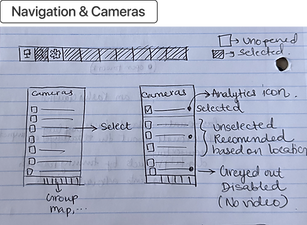 Navigation & Cameras
→ Unopened
→ Selected.
Cameras
→ Select
Group
map,...
Cameras
→ Analytics icon.
Selected
Unselected
Recomended
based on location
→ Greyed out
Disabled
(No video)